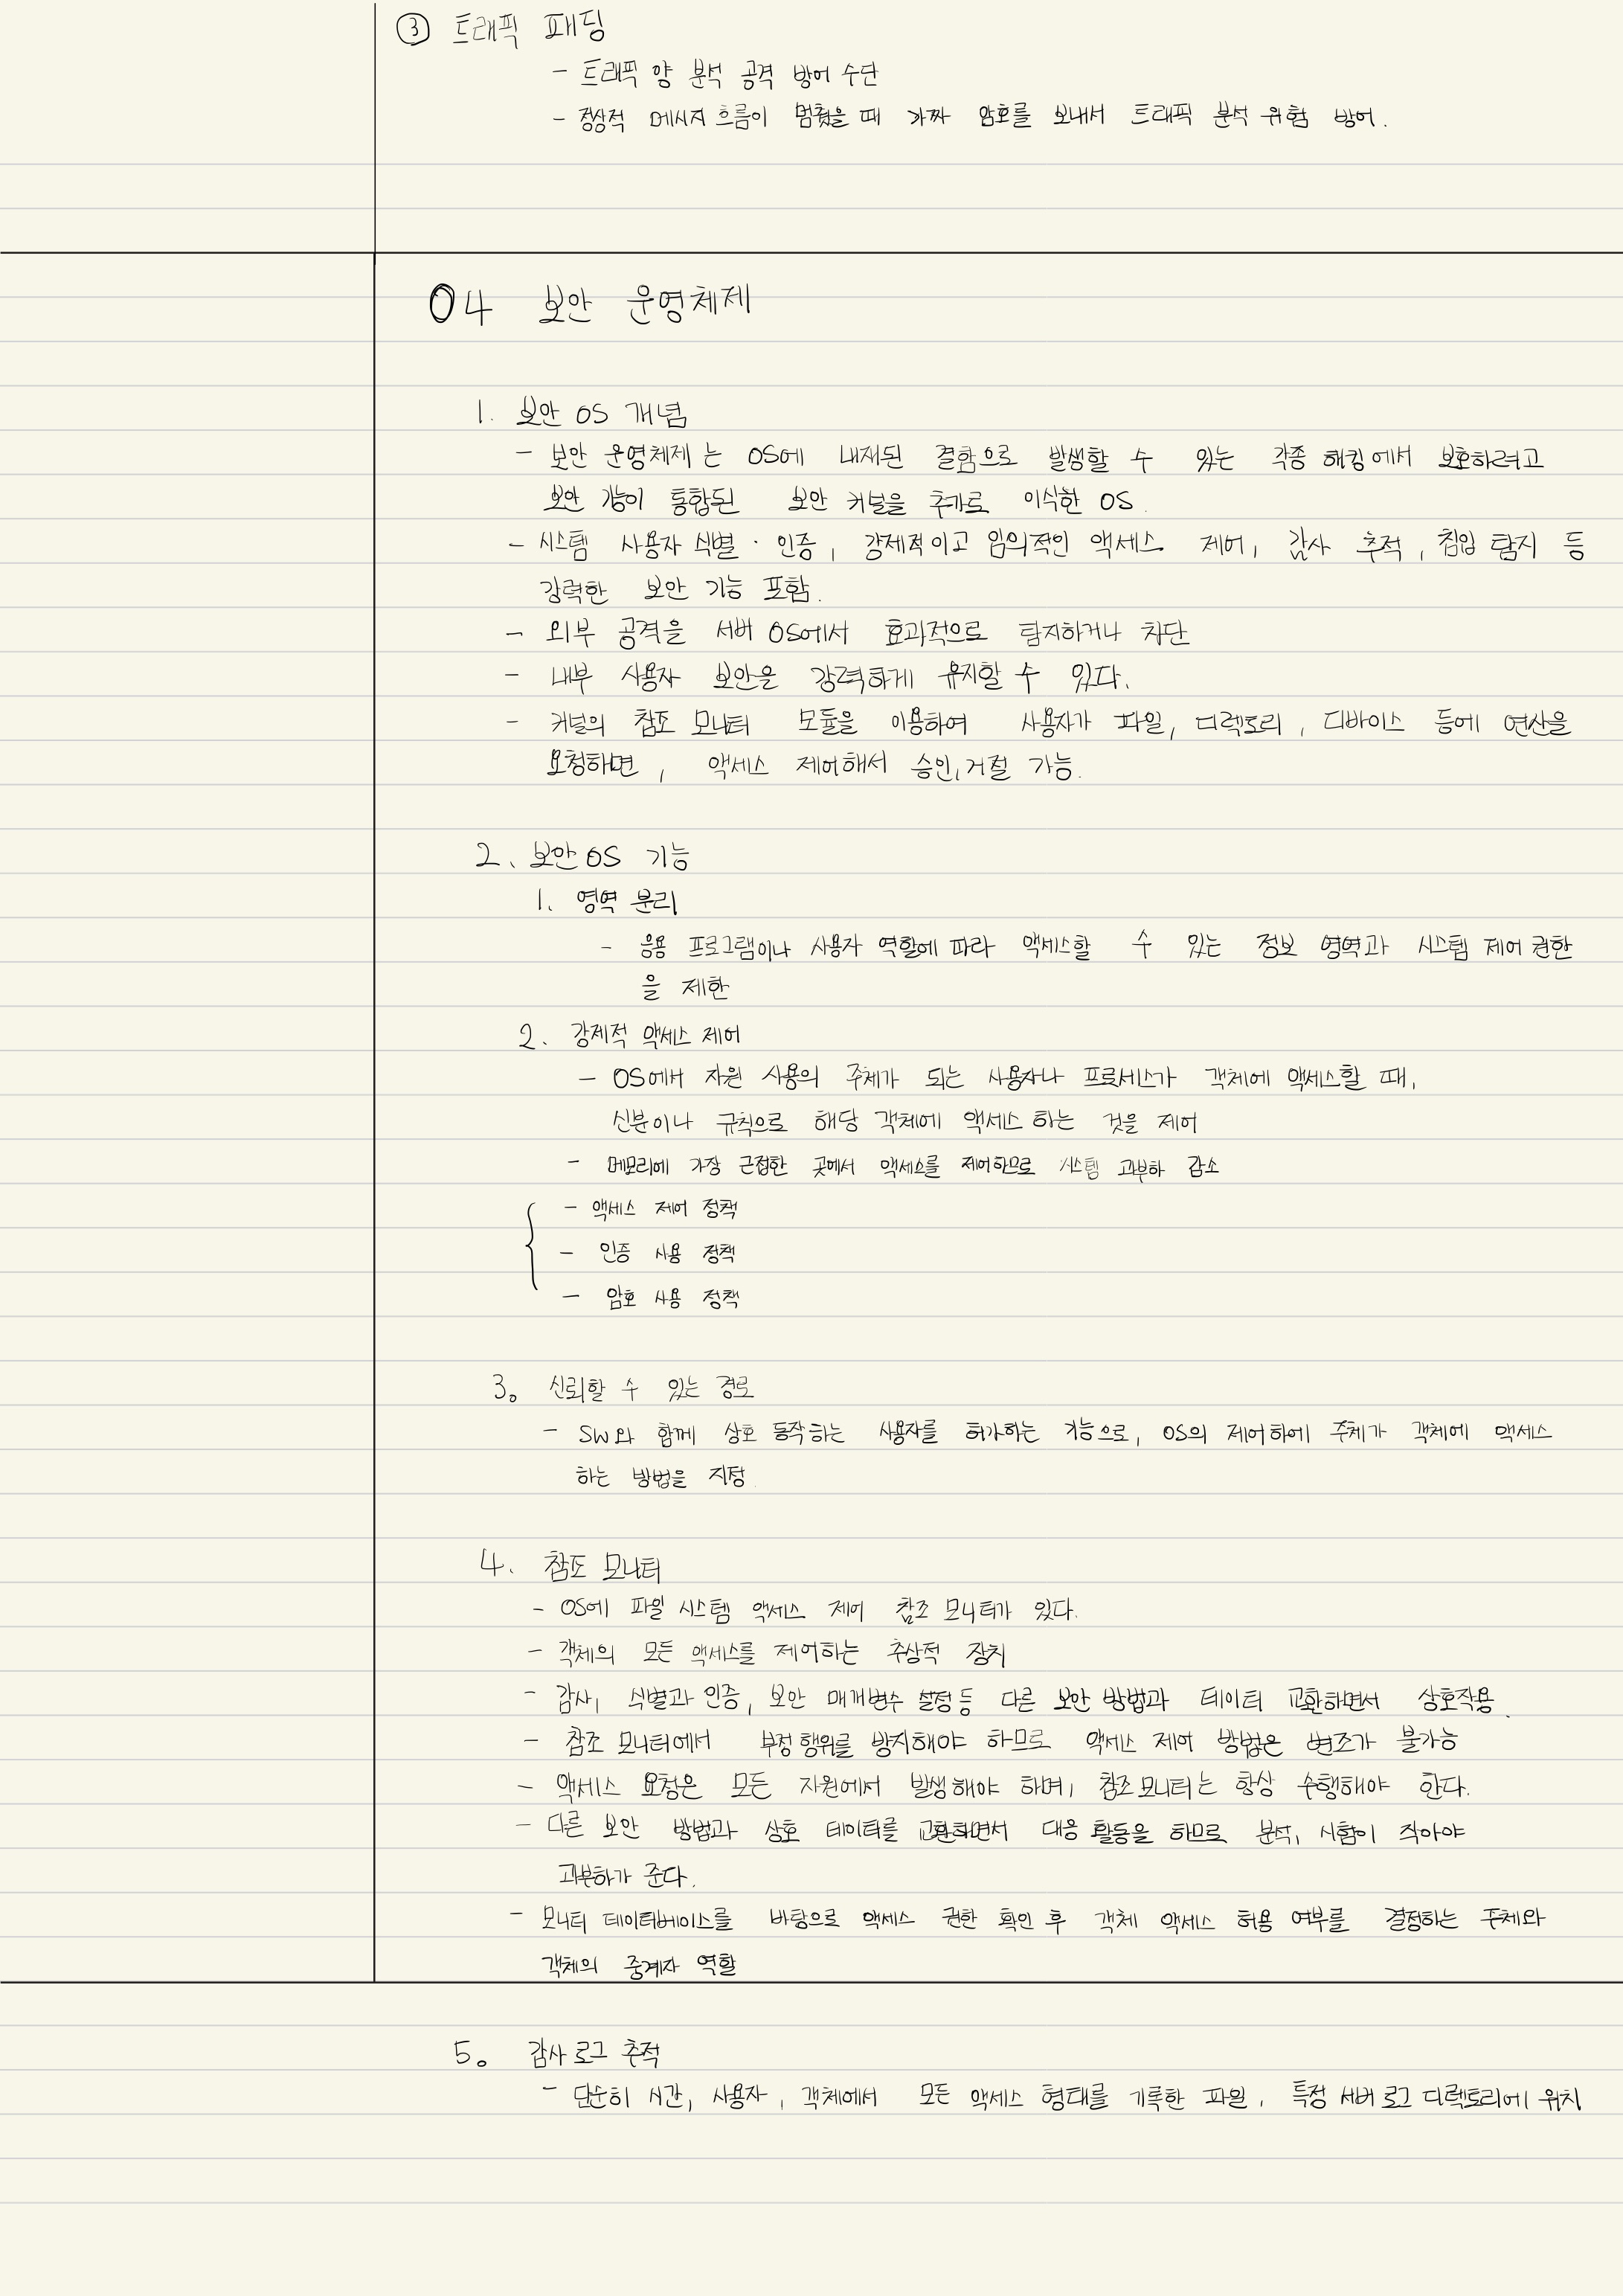 ③ 트래픽 패딩
- 트래픽 양 분석 공격 방어 수단
- 정상적 메시지 흐름이 멈췄을 때 가짜 암호를 보내서 트래픽 분석 위험 방어.
04 보안 운영체제
1. 보안 OS 개념
- 보안 운영체제는 OS에 내재된 결함으로 발생할 수 있는 각종 해킹에서 보호하려고
보안 기능이 통합된 보안 커널을 추가로 이식한 OS.
- 시스템 사용자 식별·인증, 강제적이고 임의적인 액세스 제어, 감사 추적, 침입 탐지 등
강력한 보안 기능 포함.
- 외부 공격을 서버 OS에서 효과적으로 탐지하거나 차단
- 내부 사용자 보안을 강력하게 유지할 수 있다.
- 커널의 참조 모니터 모듈을 이용하여 사용자가 파일, 디렉토리, 디바이스 등에 연산을
요청하면, 액세스 제어해서 승인,거절 가능.
2. 보안OS 기능
1. 영역 분리
- 응용 프로그램이나 사용자 역할에 따라 액세스할 수 있는 정보 영역과 시스템 제어 권한
을 제한
2. 강제적 액세스 제어
- OS에서 자원 사용의 주체가 되는 사용자나 프로세스가 객체에 액세스할 때,
신분이나 규칙으로 해당 객체에 액세스 하는 것을 제어
- 메모리에 가장 근접한 곳에서 액세스를 제어하므로 시스템 과부하 감소
- 액세스 제어 정책
- 인증 사용 정책
- 암호 사용 정책
3. 신뢰할 수 있는 경로
- SW와 함께 상호 동작하는 사용자를 허가하는 기능으로, OS의 제어하에 주체가 객체에 액세스
하는 방법을 지정.
4. 참조 모니터
- OS에 파일 시스템 액세스 제어 참조 모니터가 있다.
- 객체의 모든 액세스를 제어하는 추상적 장치
- 감사, 식별과 인증, 보안 매개변수 설정 등 다른 보안 방법과 데이터 교환하면서 상호작용.
- 참조 모니터에서 부정 행위를 방지해야 하므로 액세스 제어 방법은 변조가 불가능
- 액세스 요청은 모든 자원에서 발생해야 하며, 참조모니터는 항상 수행해야 한다.
- 다른 보안 방법과 상호 데이터를 교환하면서 대응 활동을 하므로 분석, 시험이 작아야
과부하가 준다.
- 모니터 데이터베이스를 바탕으로 액세스 권한 확인 후 객체 액세스 허용 여부를 결정하는 주체와
객체의 중계자 역할
5. 감사 로그 추적
- 단순히 시간, 사용자, 객체에서 모든 액세스 형태를 기록한 파일, 특정 서버 로그 디렉토리에 위치